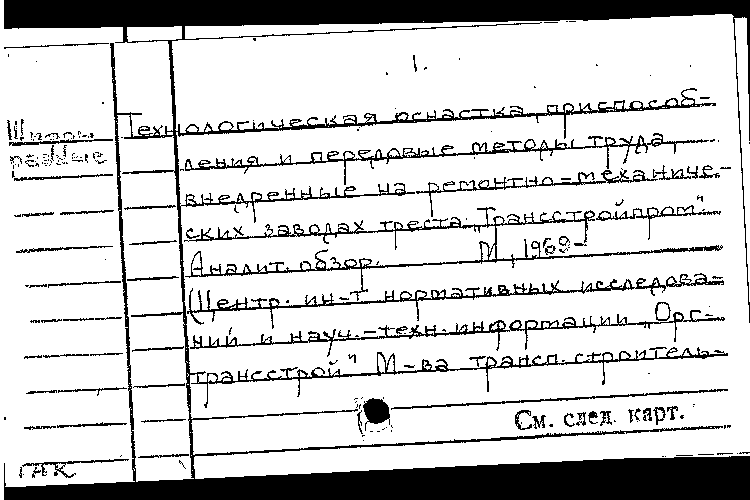 1.
Технологическая оснастка, приспособ-
ления и передовые методы труда,
внедренные на ремонтно-механиче-
ских заводах треста „Трансстройпром".
Аналит. обзор. М, 1969-
(Центр. ин-т нормативных исследова-
ний и науч.-техн. информации „Орг-
трансстрой" М-ва трансп. строитель-
См. след. карт.
ГАК